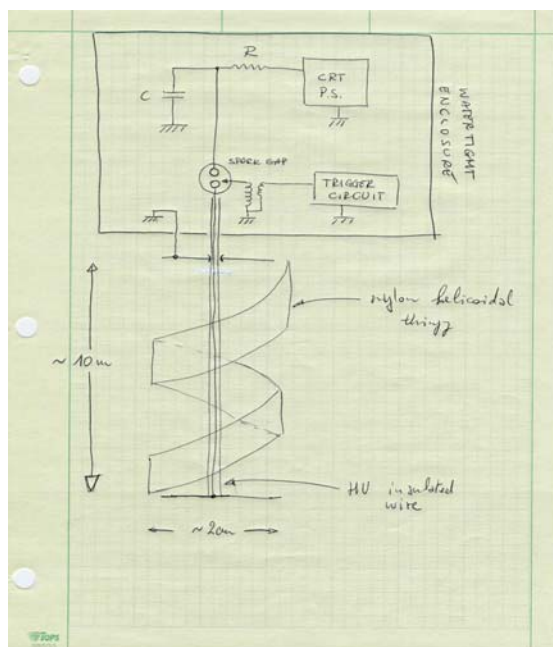 R
CRT
P.S.
C
WATERTIGHT
ENCLOSURE
SPARK GAP
TRIGGER
CIRCUIT
nylon helicoidal
thingy
~ 10 m
HV insulated
wire
~ 2cm
TOPS